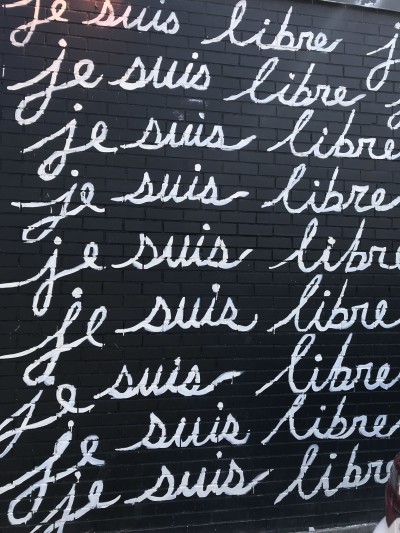 je suis libre j
je suis libre
je suis libre
je suis libre
je suis libre
je suis libre
je suis libre
je suis libre
je suis libre